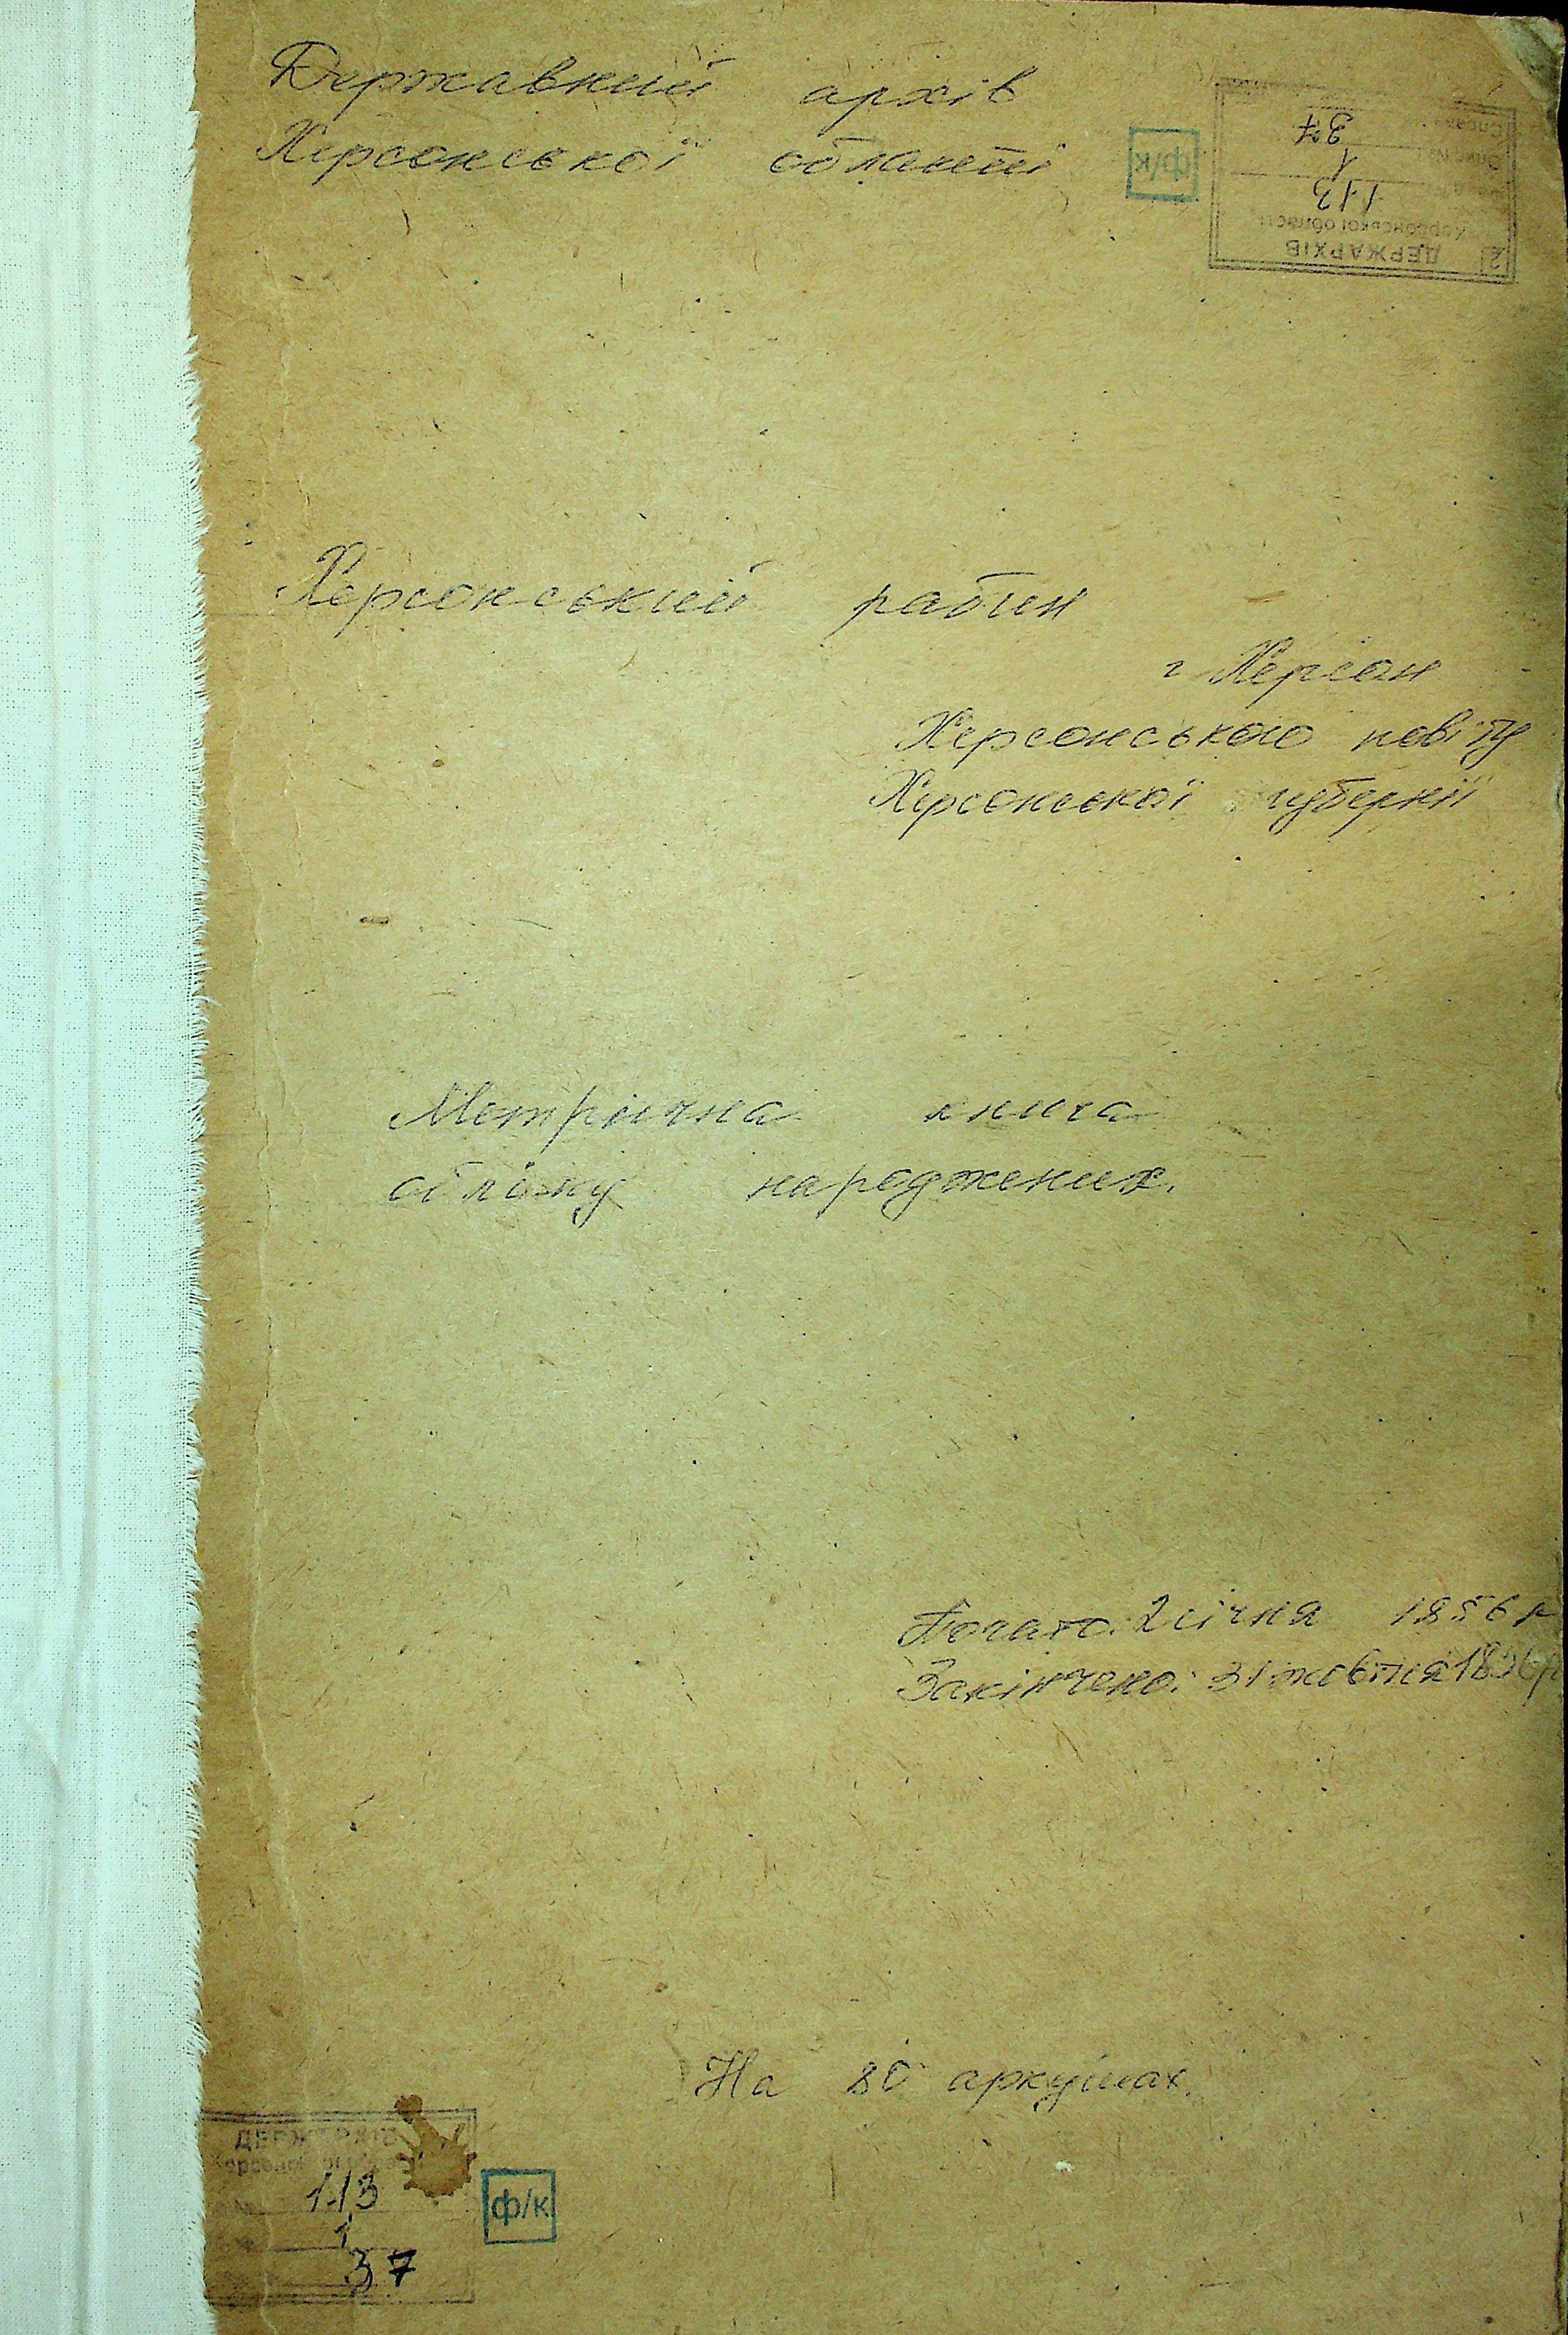 Державний архів
Херсонської області
ф/к
ДЕРЖАРХІВ
Херсонської області
113
1
37
Херсонський рабин
г Херсон
Херсонського повіту
Херсонської губернії
Метрична книга
обліку народжених.
Почато: 2 січня 1856 р
Закінчено: 31 жовтня 1856 р
На 80 аркушах.
ДЕРЖАРХІВ
Херсонської області
113
1
37
ф/к